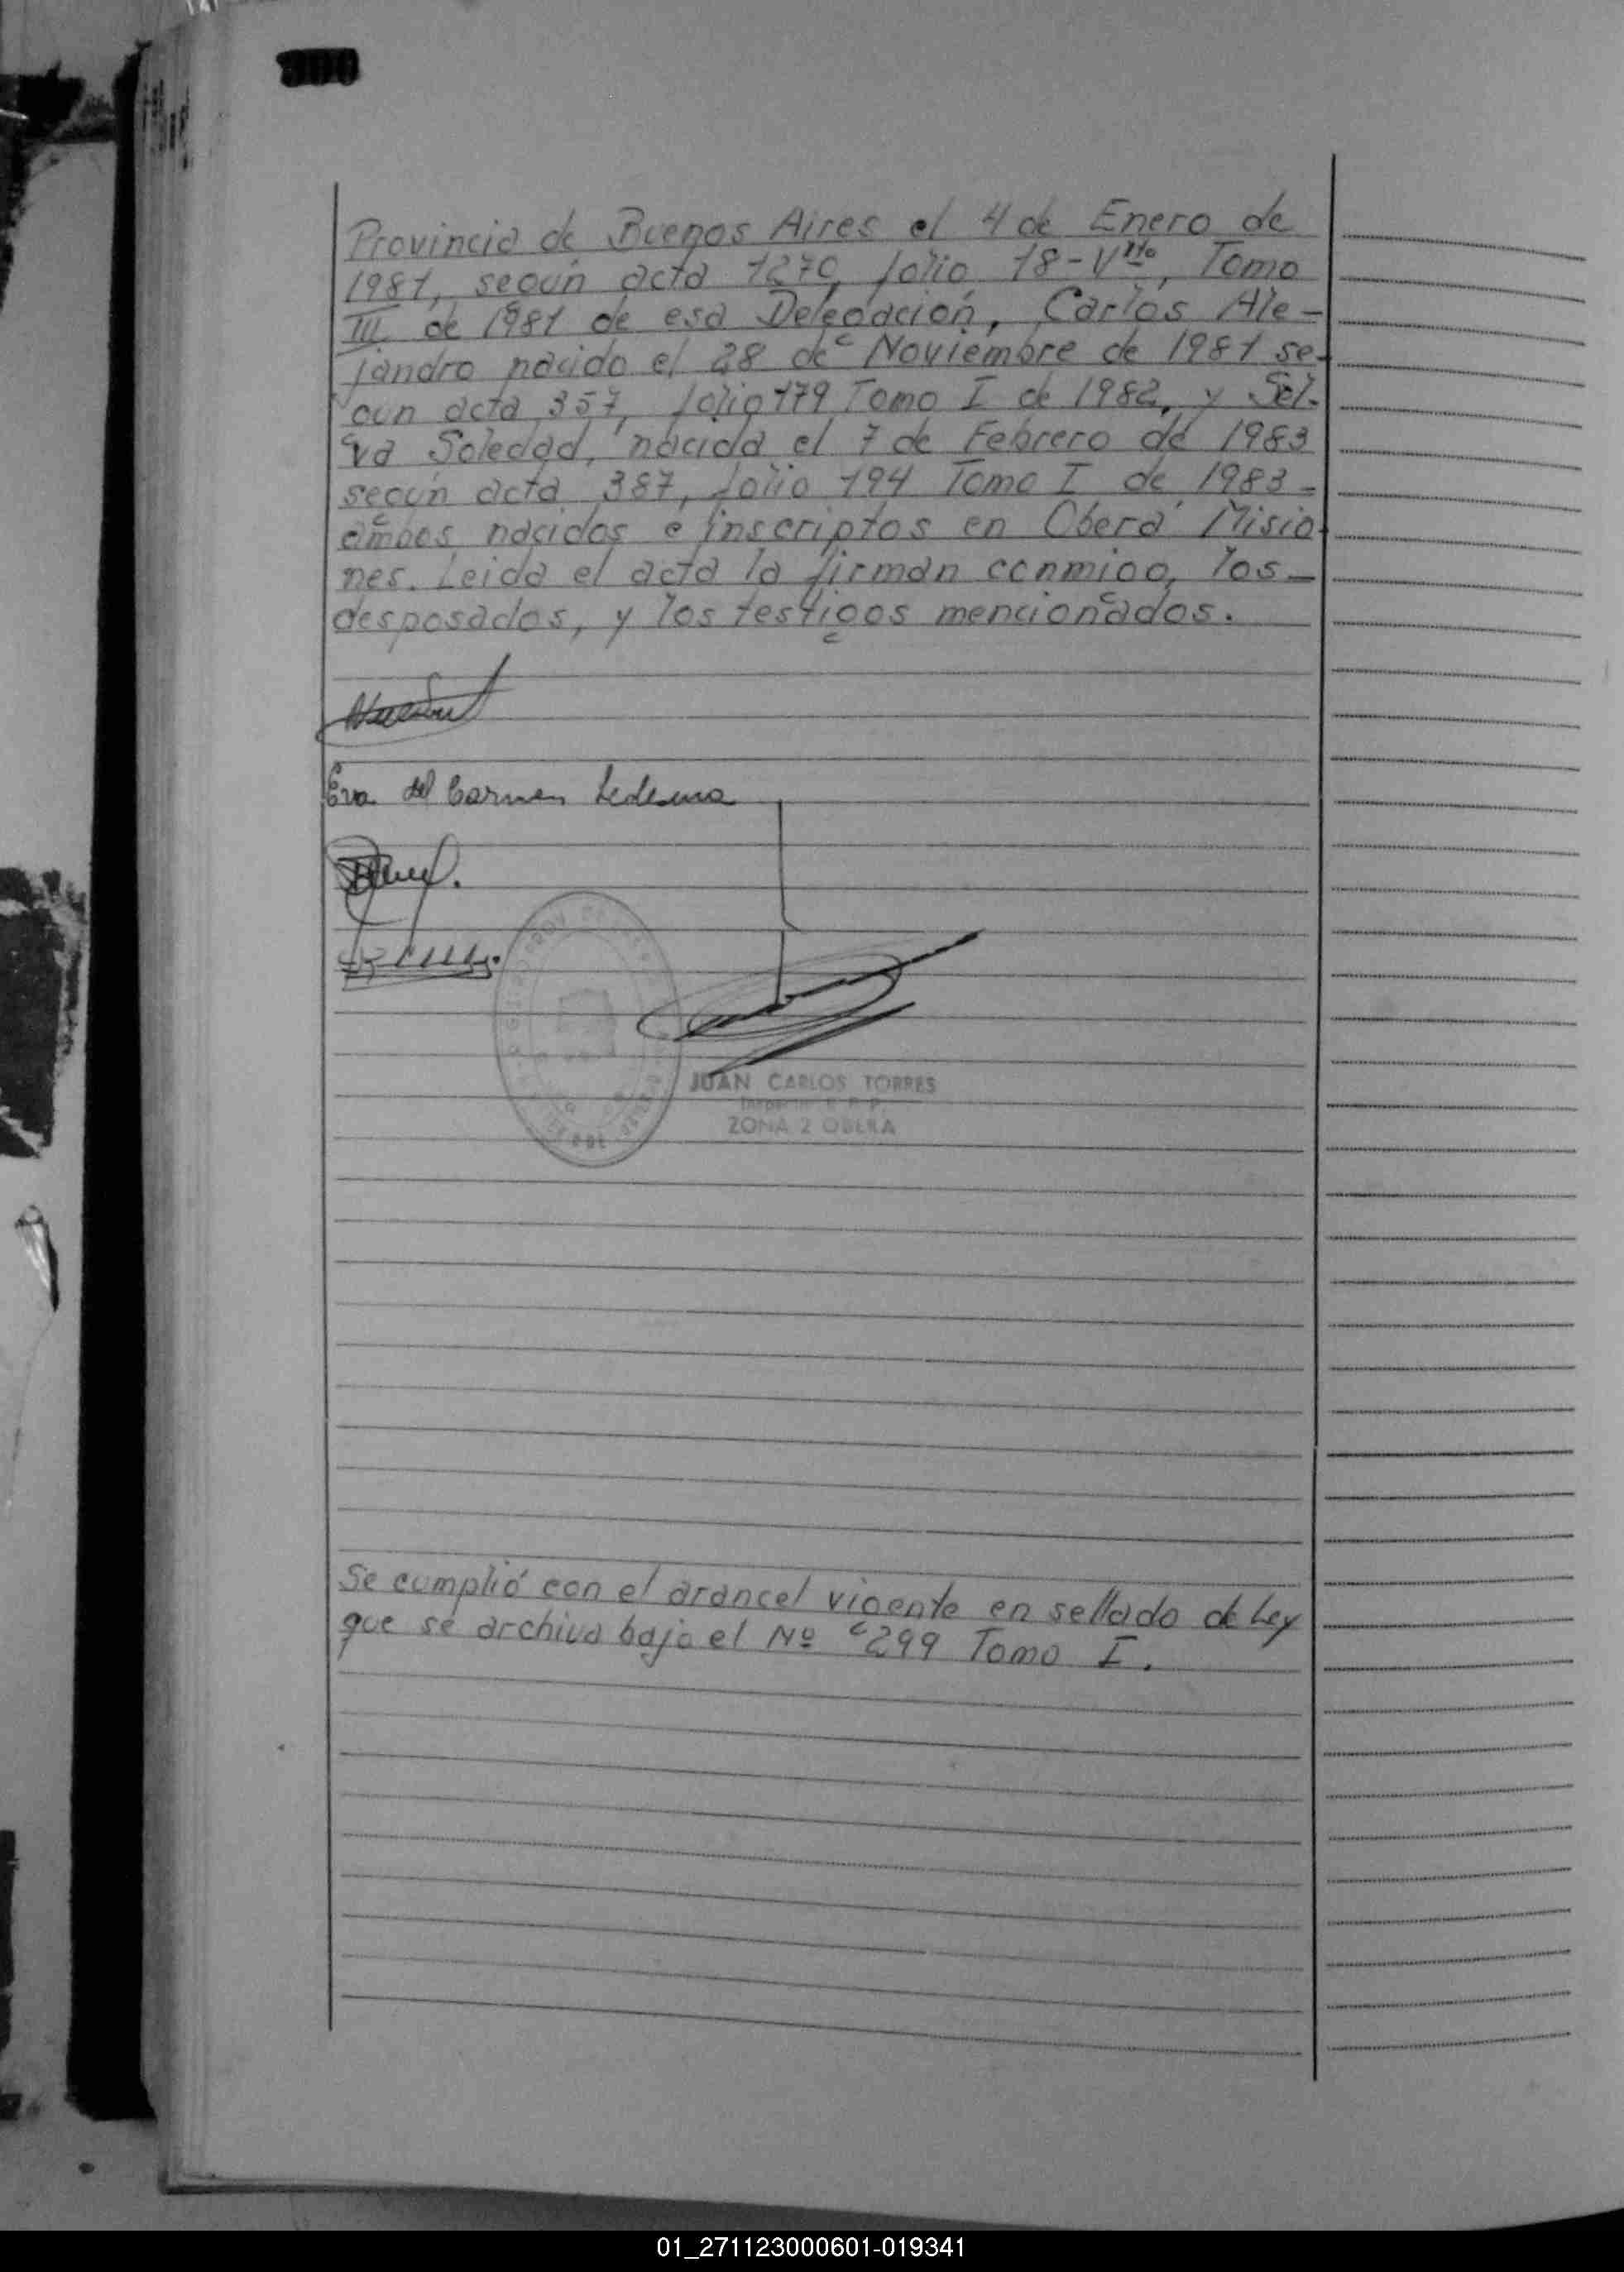 300
Provincia de Buenos Aires el 4 de Enero de
1981, según acta 1270, folio 18-Vto, Tomo
III de 1981 de esa Delegación, Carlos Ale-
jandro nacido el 28 de Noviembre de 1981 se-
gun acta 357, folio 179 Tomo I de 1982, y Sel-
va Soledad, nacida el 7 de Febrero de 1983
según acta 387, folio 194 Tomo I de 1983-
ambos nacidos e inscriptos en Oberá Misio-
nes. Leida el acta la firman conmigo, los-
desposados, y los testigos mencionados.
Eva del Carmen Ledesma
JUAN CARLOS TORRES
ZONA 2 OBERA
Se cumplió con el arancel vigente en sellado de Ley
que se archiva bajo el Nº 299 Tomo I.
01_271123000601-019341